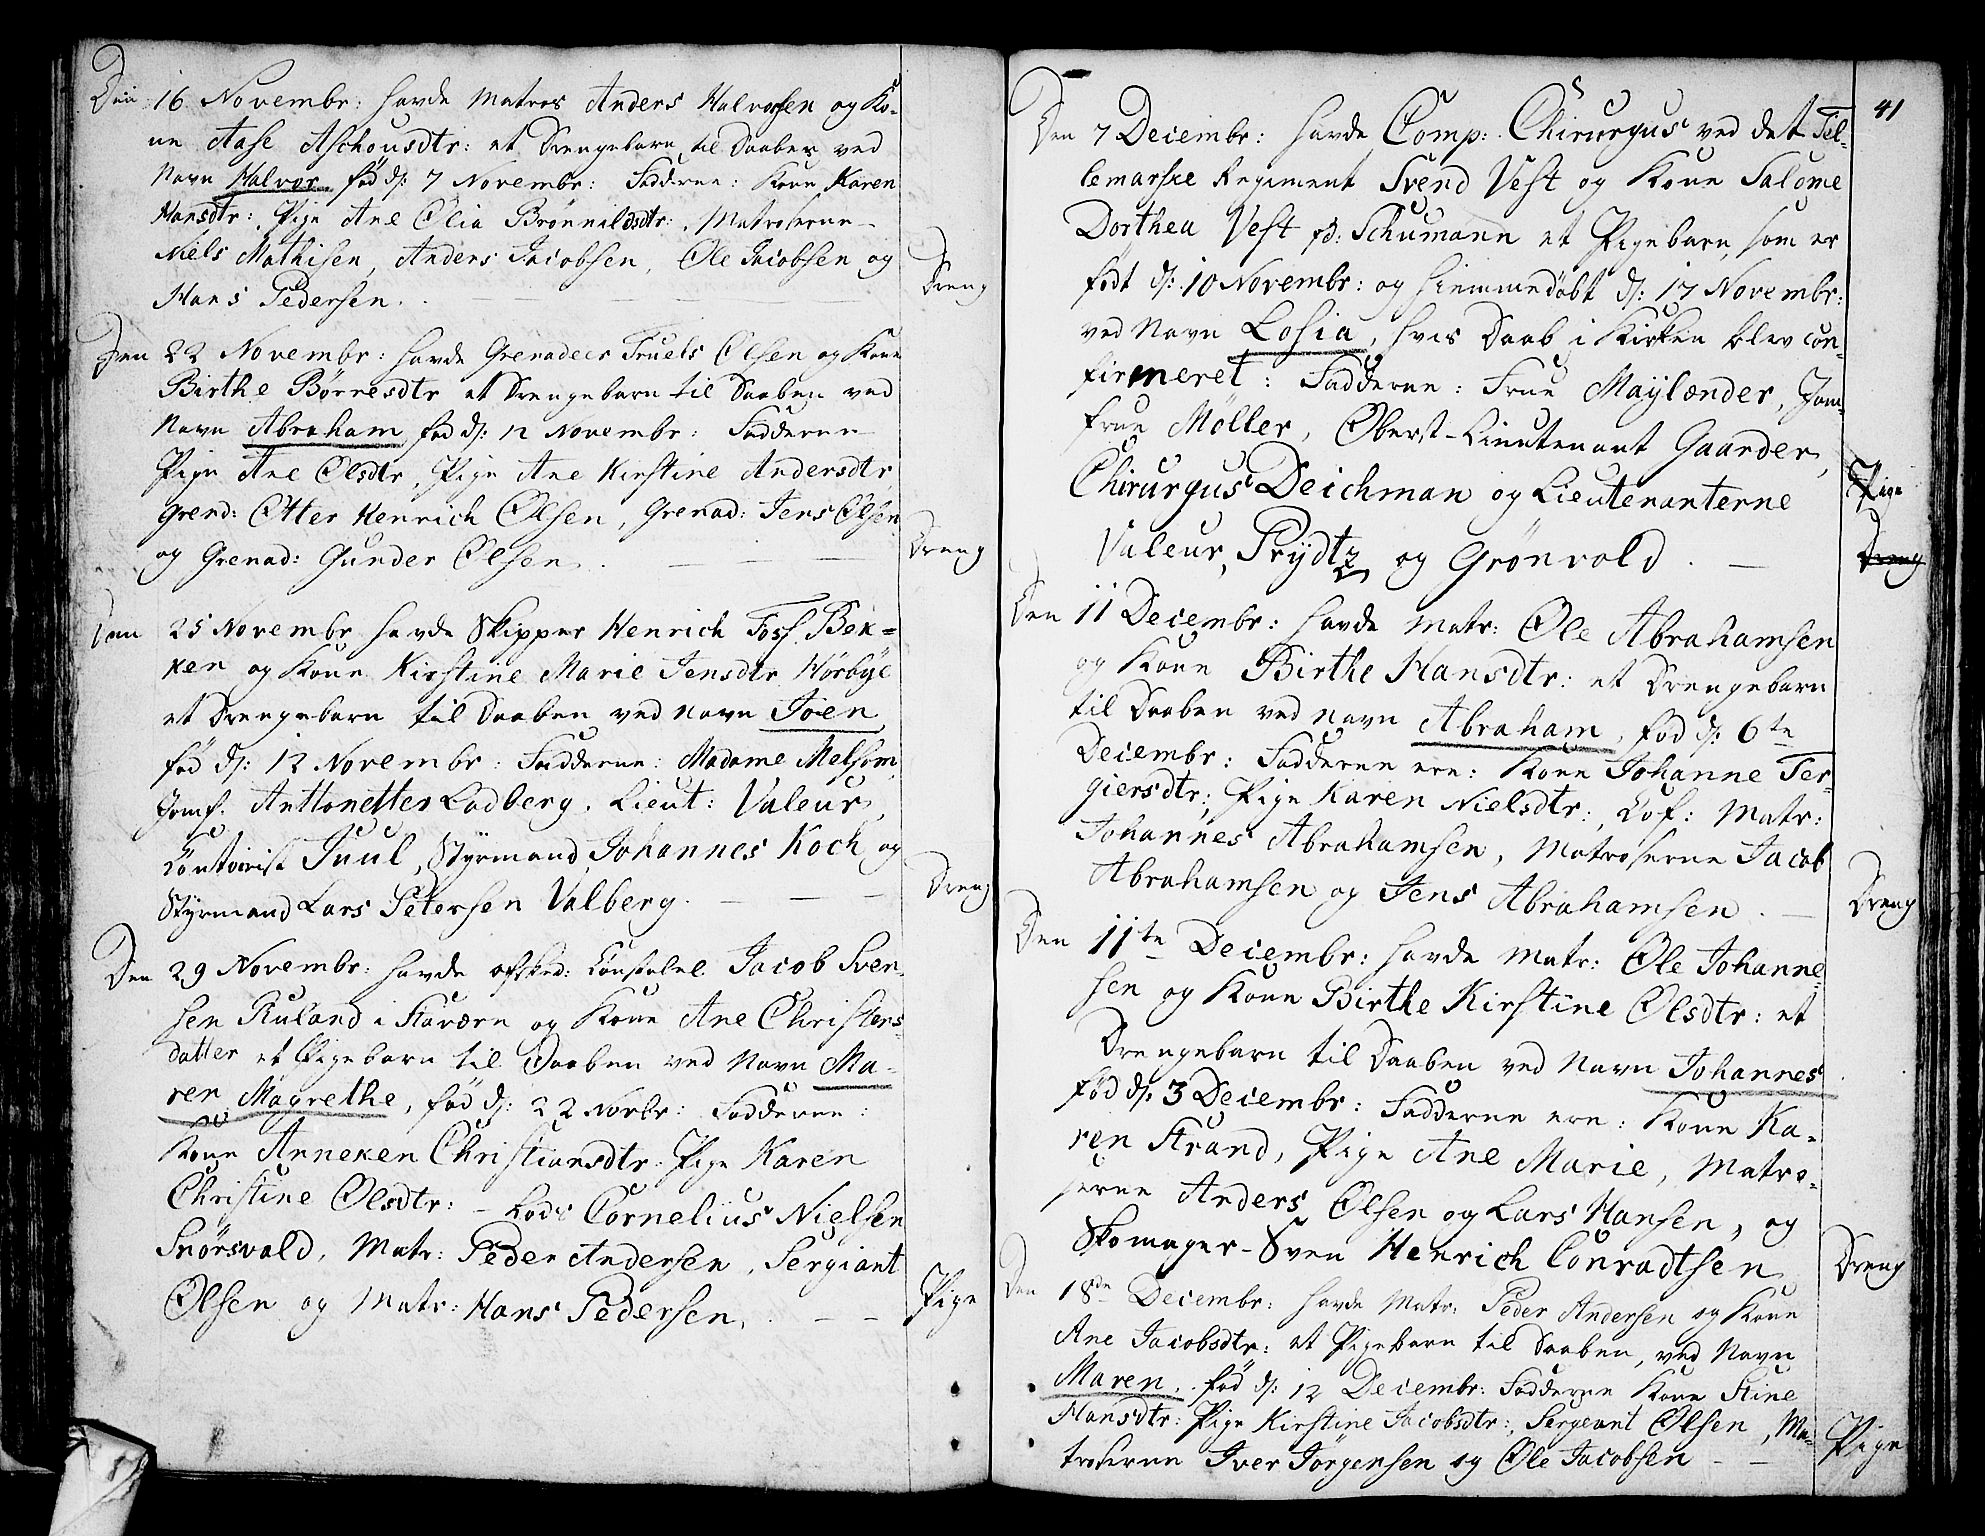 Den 16 Novembr: havde Matros Anders Halvorsen og Ko-
ne Aase Aschousdtr: et Drengebarn til Daaben ved
Navn Halvor fød d: 7 Novembr: Fadderne: Kone Karen
Hansdtr:, Pige Ane Olia Brönnildsdtr:, Matroserne
Niels Mathisen, Anders Jacobsen, Ole Jacobsen og
Hans Pedersen. Dreng
Den 22 Novembr: havde Grenadeer Truels Olsen og Kone
Birthe Börresdtr et Drengebarn til Daaben ved
Navn Abraham fød d: 12 Novembr: Fadderne
Pige Ane Olsdtr, Pige Ane Kirstine Andersdtr
Grend: Otter Henrich Olsen, Grenad: Jens Olsen
og Grenad: Gunder Olsen. Dreng
Den 25 Novembr havde Skipper Henrich Foss Bek-
ken og Kone Kirstine Marie Jensdtr Hörbÿe
et Drengebarn til Daaben ved Navn Joen,
fød d: 12 Novembr: Fadderne: Madame Melsom,
Jomf. Anttonetter Lodberg, Lieut: Valeur,
Contoirist Juul, Styrmand Johannes Koch og
Styrmand Lars Petersen Valberg. Dreng
Den 29 Novembr: havde afsked: Constabel Jacob Sven-
sen Ruland i Staværn og Kone Ane Christens
datter et Pigebarn til Daaben ved Navn Ma-
ren Magrethe, fød d: 22 Novbr: Fadderne:
Kone Anneken Christiansdtr. Pige Karen
Christine Olsdtr: - Lods Cornelius Nielsen
Snörsvald, Matr: Peder Andersen, Sergiant
Olsen og Matr: Hans Pedersen. Pige
41
Den 7 Decembr: havde Comp: Chirurgus ved det Tel-
lemarske Regiment Svend Vest og Kone Salome
Dorthea Vest fd: Schumann et Pigebarn, som er
födt d: 10 Novembr: og hiemmedöbt d: 17 Novembr:
ved Navn Losia, hvis Daab i Kirken blev con-
firmeret: Fadderne: Frue Maÿlænder, Jom-
frue Möller, Oberst-Lieutenant Gaarder,
Chirurgus Deichman og Lieutenanterne Pige
Valeur, Prÿdtz og Grönvold. Dreng
Den 11 Decembr: havde Matr: Ole Abrahamsen
og Kone Birthe Hansdtr: et Drengebarn
til Daaben ved Navn Abraham, fød d: 6te
Decembr: Fadderne ere: Kone Johanne Ter-
giersdtr; Pige Karen Nielsdtr:, Löf: Matr:
Johannes Abrahamsen, Matroserne Jacob
Abrahamsen og Jens Abrahamsen. Dreng
Den 11te Decembr: havde Matr: Ole Johanne-
sen og Kone Birthe Kirstine Olsdtr: et
Drengebarn til Daaben ved Navn Johannes
fød d: 3 Decembr: Fadderne ere: Kone Ka-
ren Strand, Pige Ane Marie, Matro-
serne Anders Olsen og Lars Hansen, og
Skomager-Sven Henrich Conradtsen Dreng
Den 18de Decembr: havde Matr: Peder Andersen og Kone
Ane Jacobsdtr: et Pigebarn til Daaben, ved Navn
Maren, fød d: 12 Decembr: Fadderne Kone Stine
Hansdtr: Pige Kirstine Jacobsdtr:, Sergeant Olsen, Ma-
troserne Iver Jörgensen og Ole Jacobsen Pige